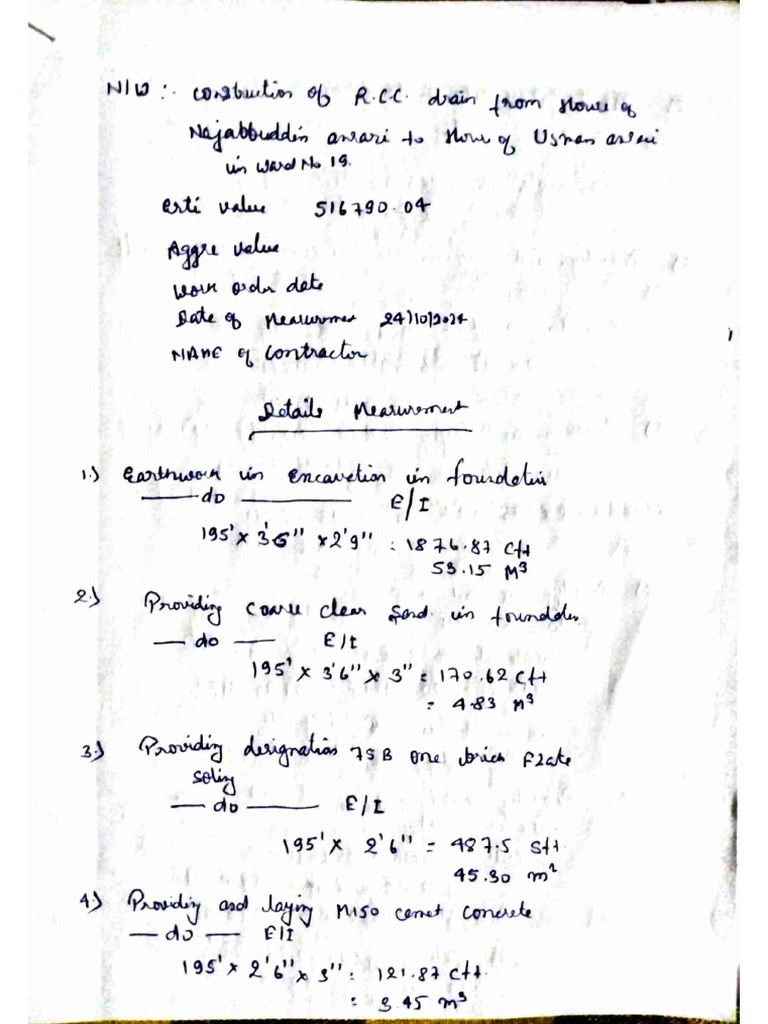 N/W :- Constuction of R.C.C. drain from House of
Najabbuddin ansari to House of Usman ansari
in ward No 19.
Esti value 516790.04
Aggre value
Work order date
Date of Measurment 24/10/2024
NAME of Contractor
Details Measurement
1.) Earthwork in Excavation in foundation
— do — E/I
195' x 3'6" x 2'9" = 1876.87 Cft
53.15 M³
2.) Providing coarse clean Sand in foundation
— do — E/I
195' x 3'6" x 3" = 170.62 Cft
= 4.83 M³
3.) Providing designation 75B one brick Flate
Soling
— do — E/I
195' x 2'6" = 487.5 Sft
45.30 m²
4.) Providing and laying M150 cemet Concrete
— do — E/I
195' x 2'6" x 3" = 121.87 Cft.
= 3.45 m³